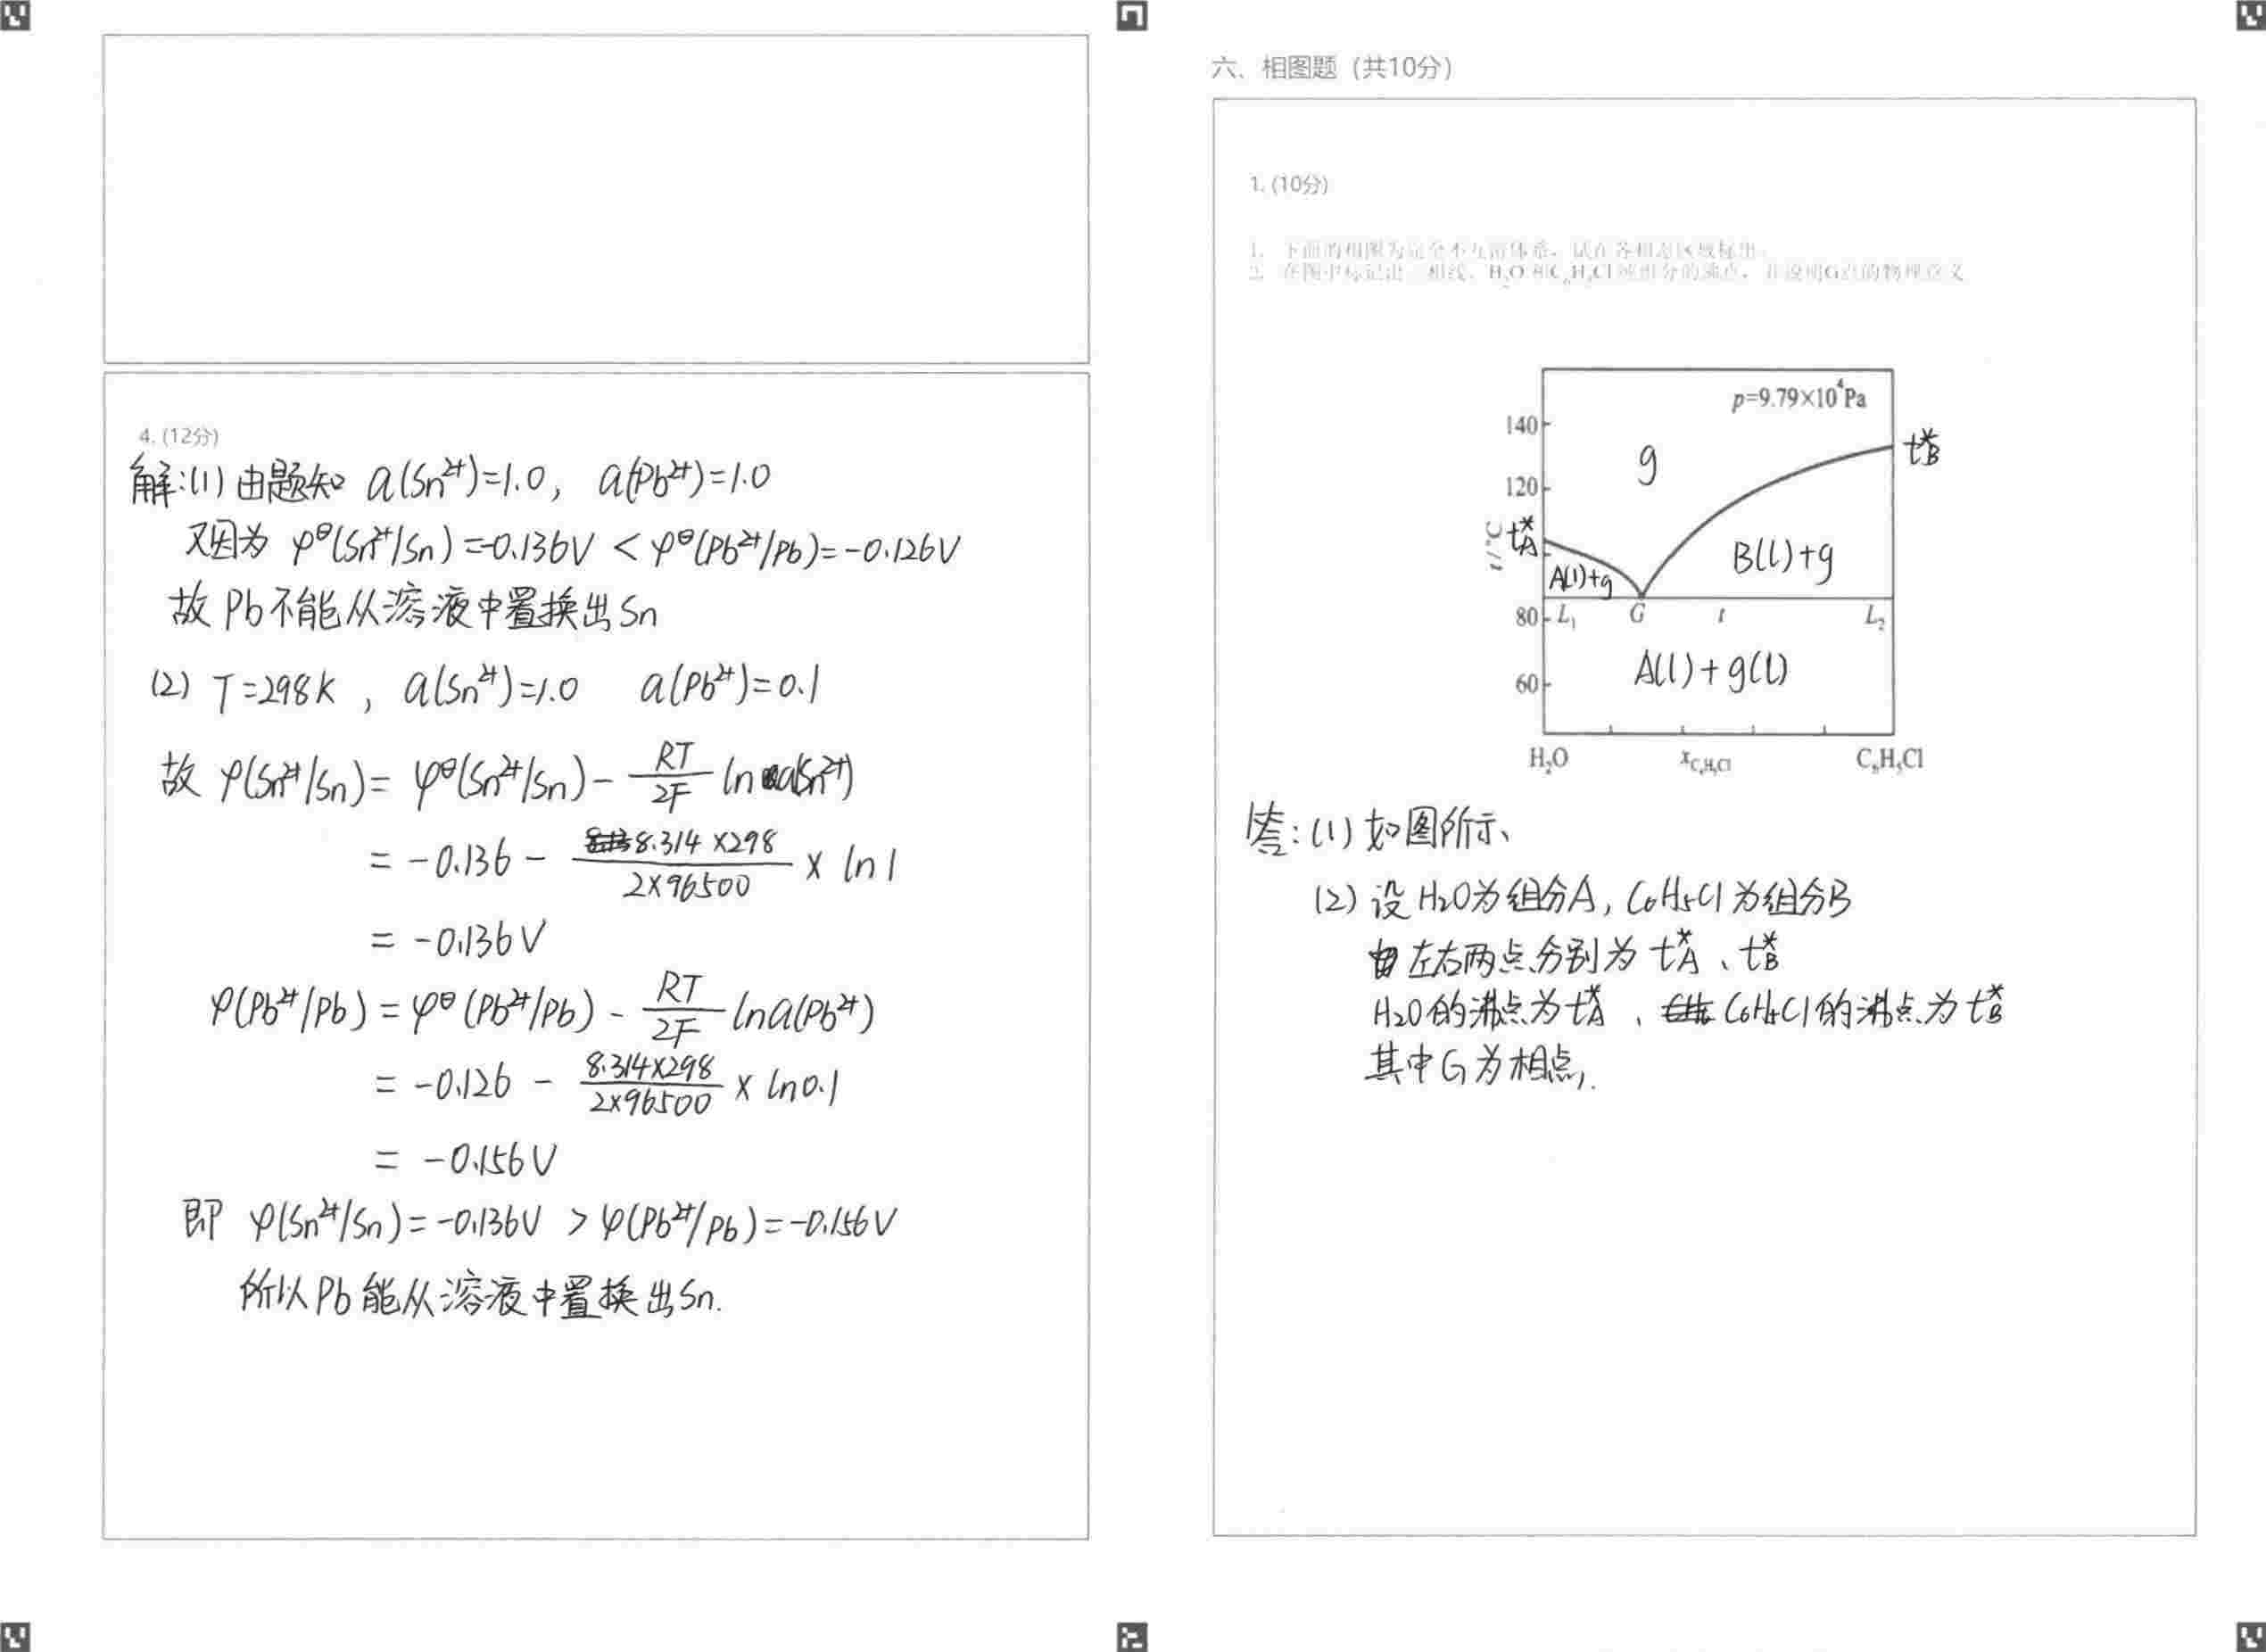 4. (12分)
解:(1) 由题知 a(Sn²⁺)=1.0, a(Pb²⁺)=1.0
又因为 φ^θ(Sn²⁺/Sn)=-0.136V < φ^θ(Pb²⁺/Pb)=-0.126V
故 Pb不能从溶液中置换出Sn
(2) T=298K , a(Sn²⁺)=1.0 a(Pb²⁺)=0.1
故 φ(Sn²⁺/Sn)= φ^θ(Sn²⁺/Sn) - RT/2F ln a(Sn²⁺)
= -0.136 - 8.314×298/2×96500 × ln1
= -0.136V
φ(Pb²⁺/Pb) = φ^θ(Pb²⁺/Pb) - RT/2F lna(Pb²⁺)
= -0.126 - 8.314×298/2×96500 × ln0.1
= -0.156V
即 φ(Sn²⁺/Sn)=-0.136V > φ(Pb²⁺/Pb)=-0.156V
所以Pb能从溶液中置换出Sn.
六、相图题 (共10分)
1. (10分)
1. 下面的相图为完全不互溶体系,试在各相态区域标出
2. 在图中标记出 相线、H₂O和C₆H₅Cl纯组分的沸点,并说明G点的物理意义
p=9.79×10⁴Pa
140
t*B
g
120
t/℃
t*A
B(l)+g
A(l)+g
80 L₁ G L₂
A(l)+g(l)
60
H₂O x_C₆H₅Cl C₆H₅Cl
答:(1) 如图所示、
(2) 设H₂O为组分A, C₆H₅Cl为组分B
左右两点分别为 t*A、t*B
H₂O的沸点为t*A、C₆H₅Cl的沸点为t*B
其中G为相点,.